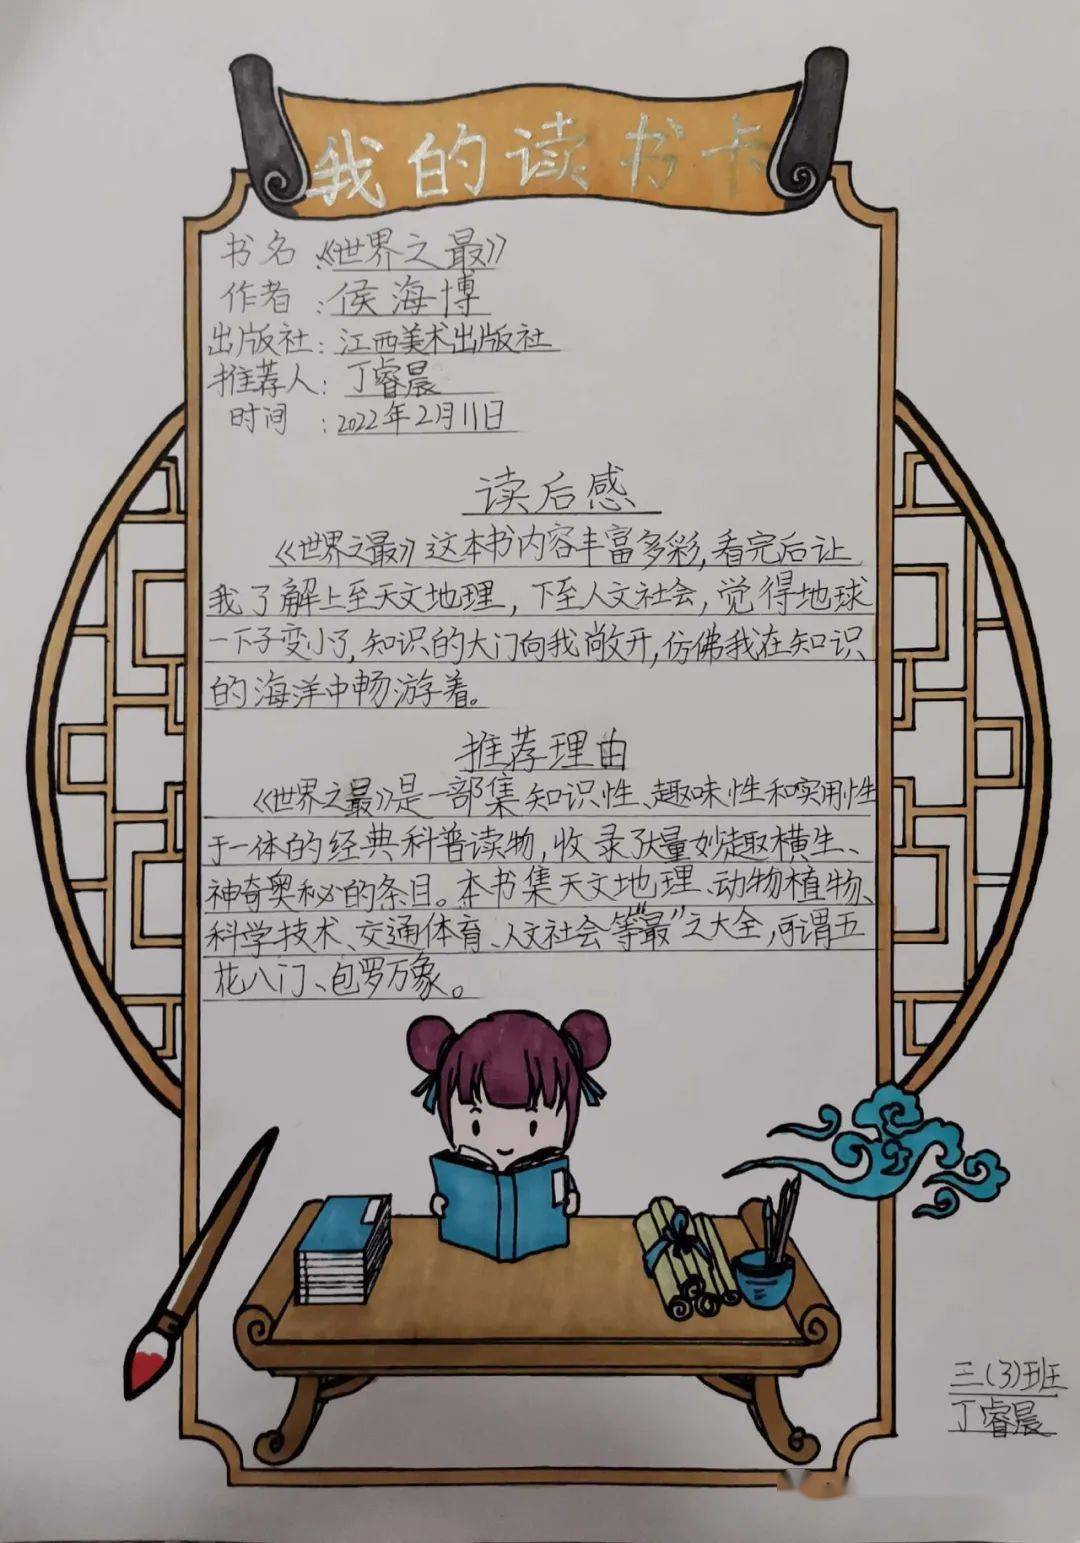 我的读书卡
书名:《世界之最》
作者:侯海博
出版社:江西美术出版社
推荐人:丁睿晨
时间:2022年2月11日
读后感
《世界之最》这本书内容丰富多彩,看完后让
我了解上至天文地理,下至人文社会,觉得地球
一下子变小了,知识的大门向我敞开,仿佛我在知识
的海洋中畅游着。
推荐理由
《世界之最》是一部集知识性、趣味性和实用性
于一体的经典科普读物,收录了大量妙趣横生、
神奇奥秘的条目。本书集天文地理、动物植物、
科学技术、交通体育、人文社会等“最”之大全,可谓五
花八门、包罗万象。
三(3)班
丁睿晨